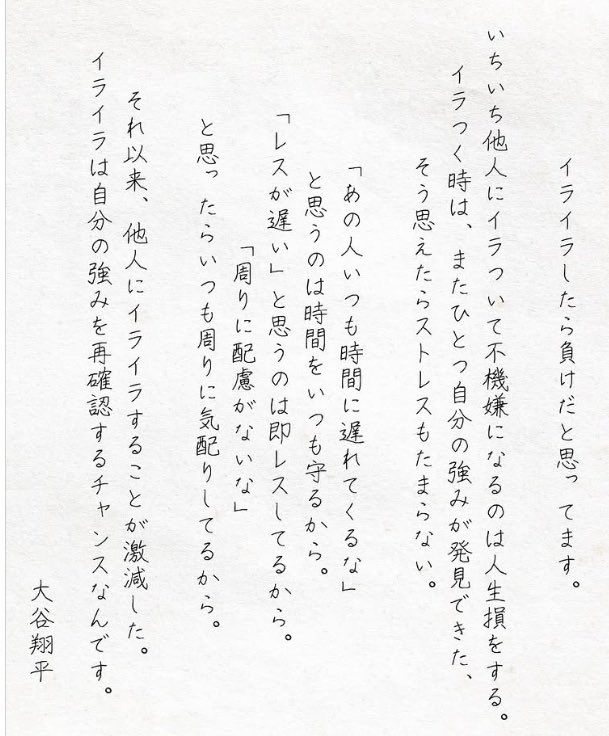 イライラしたら負けだと思ってます。
いちいち他人にイラついて不機嫌になるのは人生損をする。
イラつく時は、またひとつ自分の強みが発見できた、
そう思えたらストレスもたまらない。
「あの人いつも時間に遅れてくるな」
と思うのは時間をいつも守るから。
「レスが遅い」と思うのは即レスしてるから。
「周りに配慮がないな」
と思ったらいつも周りに気配りしてるから。
それ以来、他人にイライラすることが激減した。
イライラは自分の強みを再確認するチャンスなんです。
大谷翔平